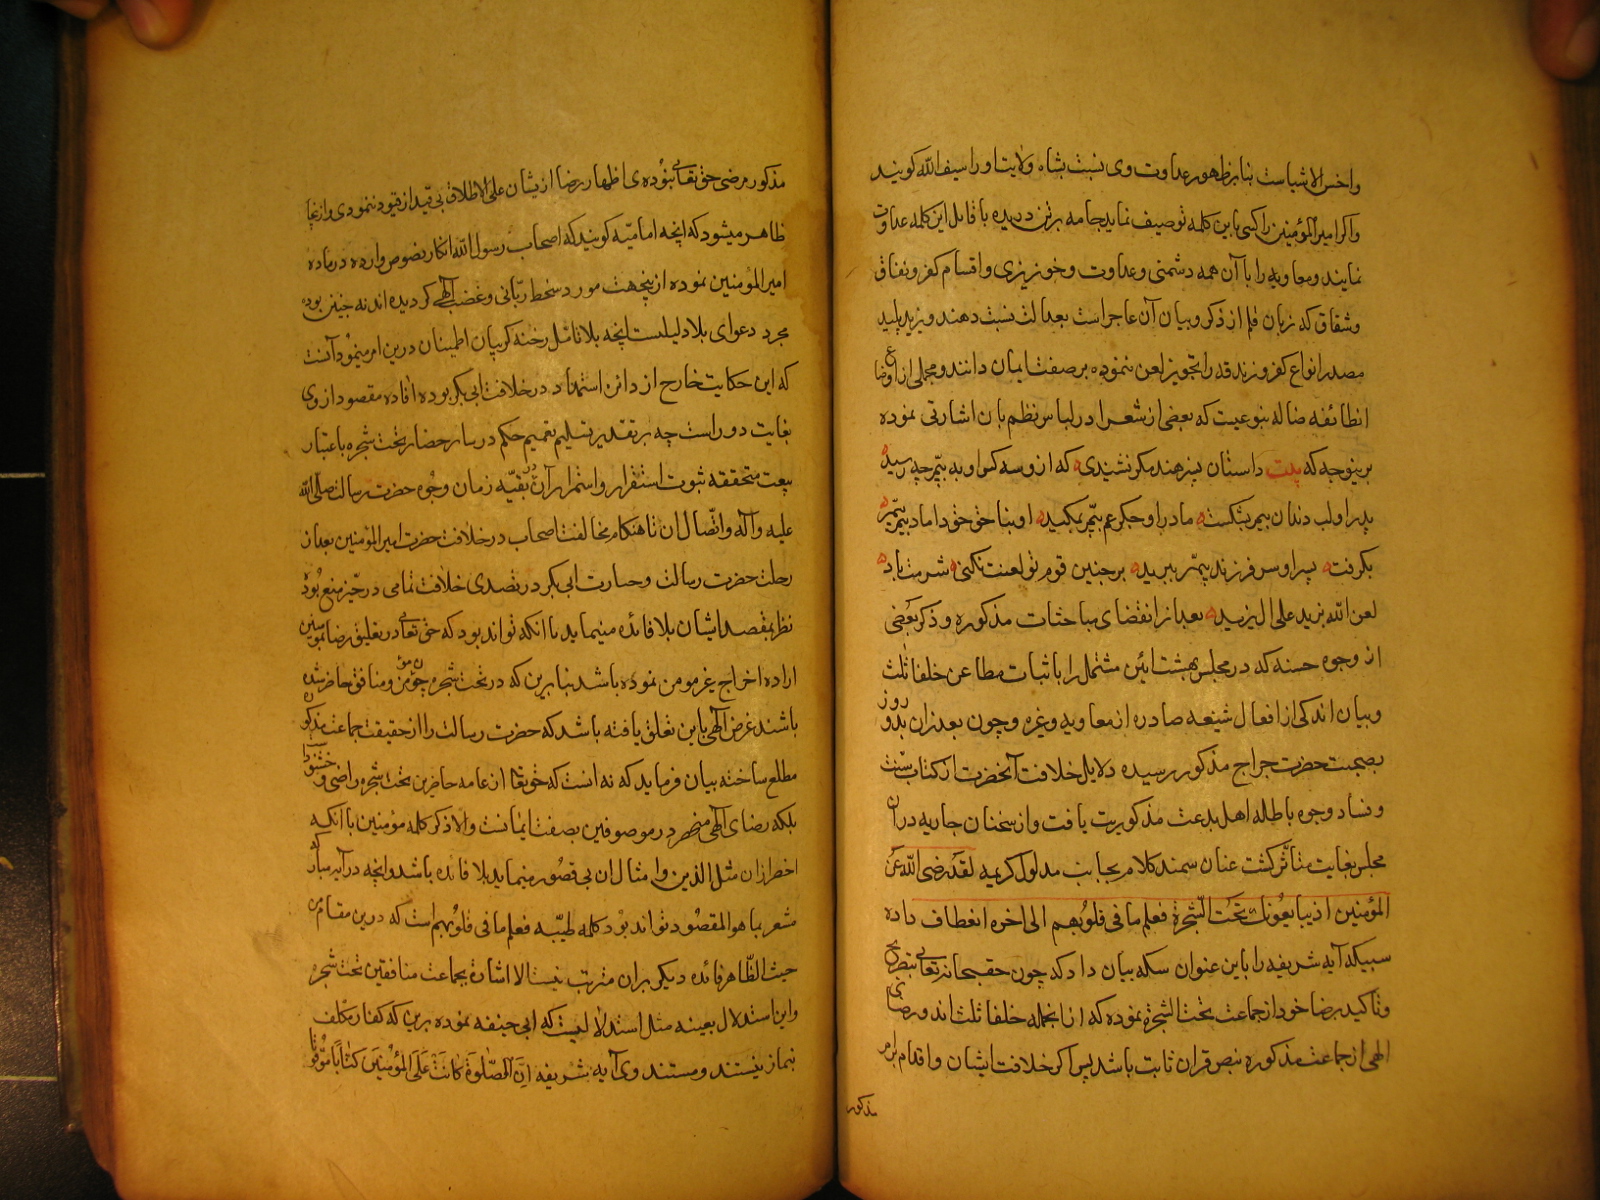 واخس الاشیاست بنابر ظهور عداوت وی نسبت بشاه ولایت اورا سیف الله کویند
واکر امیر المؤمنین را کسی باین کلمه توصیف نماید جامه بر تن دریده با قائل این کلمه عداوت
نمایند و معاویه را با آن همه دشمنی وعداوت وخونریزی واقسام کفر ونفاق
وشقاق که زبان قلم از ذکر وبیان آن عاجز است بعدالت نسبت دهند ویزید پلید
مصدر انواع کفر وزندقه را تجویز لعن ننموده بر صفت ایمان دانند و مجملی از اوضاع
انطائفه ضاله بنوعیست که بعضی از شعرا در لباس نظم بان اشارتی نموده
برینوجه که بیت داستان پسر هند مکر نشنیدی که از و سه کس او به پیمبر چه رسید
پدر او لب دندان پیمبر بشکست مادر او جکر عم پیمبر بمکید او بناحق حق داماد پیمبر
بکرفت پسر او سر فرزند پیمبر ببرید بر چنین قوم تو لعنت نکنی شرمت باد
لعن الله یزید علی الیزید بعد از انقضای مباحثات مذکوره و ذکر بعضی
از وجوه حسنه که در مجلس بهشت ایین مشتمل را باثبات مطاعن خلفا ثلث
وبیان اندکی از افعال شنیعه صادره از معاویه وغیره وچون بعد زان بدو روز
بصحبت حضرت جراح مذکور رسیده دلایل خلافت آنحضرت از کتاب سنت
وفساد وجوه باطله اهل بدعت مذکور یریت یافت واز سخنان جاریه در ان
مجلس بغایت متأثر کشت عنان سمند کلام بجانب مدلول کریمه لقد رضی الله عن
المؤمنین اذ یبایعونك تحت الشجرة فعلم ما فی قلوبهم الی اخره انعطاف داده
سبیکه آیه شریفه را باین عنوان سکه بیان داد که چون حقسبحانه تعالی بتصریح
وتاکید رضا خود از جماعت تحت الشجرة نموده که از انجمله خلفا ثلث اند ورضای
الهی از جماعت مذکوره بنص قران ثابت باشد پس اکر خلافت ایشان واقدام بامر
مذکور
مذکور مرضی حق تعالی نبوده ی اظهار رضا ازیشان علی الاطلاق بی قید از قیود ننمودی وازنجا
ظاهر میشود که انچه امامیه کویند که اصحاب رسول الله انکار نصوص وارده در ماده
امیر المؤمنین نموده ازینجهت مورد سخط ربانی وغضب آلهی کردیده اند نه چنین بوده
مجرد دعوای بلا دلیلست انچه بلا تامل رخنه کر بیان اطمینان درین امر مینمود آنست
که این حکایت خارج از دائره استمداد در خلافت ابی بکر بوده افاده مقصود از وی
بغایت دور است چه بر تقدیر تسلیم تعمیم حکم در سایر حضار تحت شجره باعتبار
بیعت متحققه ثبوت استقرار واستمرار آن در بقیه زمان وجوه حضرت رسالت صلی الله
علیه وآله واتصال ان تا هنکام مخالفت اصحاب در خلافت حضرت امیر المؤمنین بعد از
رحلت حضرت رسالت وجسارت ابی بکر در تصدی خلافت تمامی در حیز منع بوده
نظر بمقصد ایشان بلا فائده مینماید با انکه تواند بود که حق تعالی در تعلیق رضا بمومنین
اراده اخراج غیر مومن نموده باشد بنابرین که در تحت شجره چون مؤمن ومنافق حاضر شده
باشند غرض آلهی باین تعلق یافته باشد که حضرت رسالت را از حقیقت جماعت مذکور
مطلع ساخته بیان فرماید که نه انست که حقتعالی از عامه حاضرین تحت شجره راضی وخشنود
بلکه رضای آلهی منحصر در موصوفین بصفت ایمانست والا ذکر کلمه مؤمنین با انکه
اخصر از ان مثل الذین وامثال ان بی قصور مینماید بلا فائده باشد وانچه در آیه مبارکه
مشعر بما هو المقصود تواند بود کلمه طیبه فعلم ما فی قلوبهم است که درین مقام من
حیث الظاهر فائده دیکر بران مترتب نیست الا اشارة بجماعت منافقین تحت شجره
واین استدلال بعینه مثل استدلالیست که ابی حنیفه نموده برین که کفار مکلف
بنماز نیستند ومستند وی آیه شریفه ان الصلوة کانت علی المؤمنین کتابا موقوتا